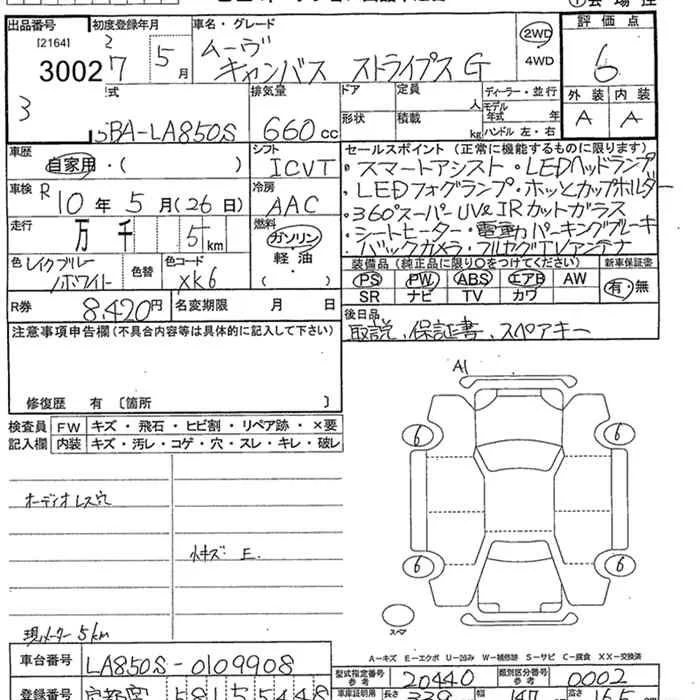 出品番号
[2164]
3002
3
初度登録年月
R 7 5月
車名・グレード
ムーヴ
キャンバス ストライプス G
2WD
4WD
評価点
6
外装 内装
A A
型式
5BA-LA850S
排気量
660cc
ドア
形状
定員
人
積載
kg
ディーラー・並行
モデル年式 年
ハンドル 左・右
車歴
自家用・( )
シフト
ICVT
車検
R10年5月(26日)
冷房
AAC
走行
万 千 5km
燃料
ガソリン
軽・油
( )
色
レイクブルー
ホワイト
色替
色コード
XK6
R券
8,420円
名変期限 月 日
セールスポイント(正常に機能するものに限ります)
・スマートアシスト・LEDヘッドランプ
・LEDフォグランプ・ホッとカップホルダー
・360°スーパーUV&IRカットガラス
・シートヒーター・電動パーキングブレーキ
・バックカメラ・フルセグTVアンテナ
装備品(純正品に限り○をつけてください)
PS PW ABS エアB AW
SR ナビ TV カワ
新車保証書
有・無
後日品
取説、保証書、スペアキー
注意事項申告欄(不具合内容等は具体的に記入して下さい)
修復歴 有〔箇所
検査員
記入欄
FW キズ・飛石・ヒビ割・リペア跡・×要
内装 キズ・汚レ・コゲ・穴・スレ・キレ・破レ
オーディオレス穴
小キズ: E.
現メーター5km
A1
6
6
6
6
スペア
A-キズ E-エクボ U-凹み W-補修跡 S-サビ C-腐食 XX-交換済
車台番号
LA850S-0109908
型式指定番号
参考
20440
類別区分番号
参考
0002
登録番号
宇都宮 581 5 5448
車庫証明用
参考
長さ
339
幅
147
高さ
165